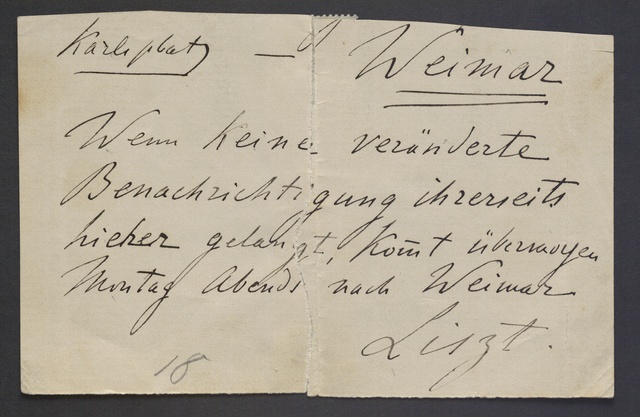 Karlsplatz — Weimar
Wenn keine veränderte
Benachrichtigung ihrerseits
hieher gelangt, kom̄t übermorgen
Montag Abends nach Weimar
Liszt.
18